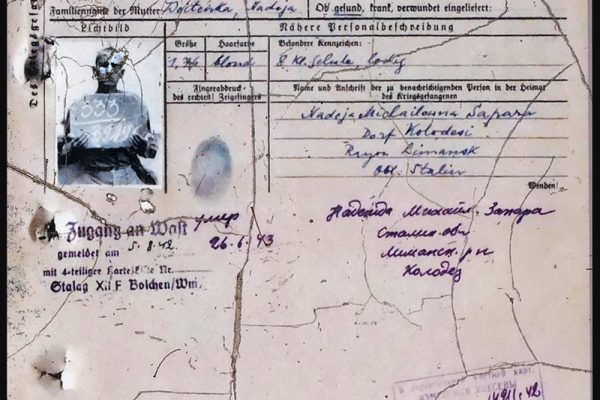 Familienname der Mutter: Nadeja
Ob gesund, krank, verwundet eingeliefert:
Lichtbild
Nähere Personalbeschreibung
Größe
Haarfarbe
Besondere Kennzeichen:
1,
blond
8 Kl. Schule, ledig
Fingerabdruck
des rechten Zeigefingers
Name und Anschrift der zu benachrichtigenden Person in der Heimat
des Kriegsgefangenen
Nadeja Michailowna Sapara
Dorf Kolodesi
Rayon Limansk
Obl. Stalin
Wenden!
333
Zugang an Wast
умер
gemeldet am 5.8.42
26.6.43
mit 4-teiliger Nr.
Stalag XII F Bolchen/Wm.
Надежда Михайл. Запара
Сталин. обл
Лиманск. р-н
Колодез